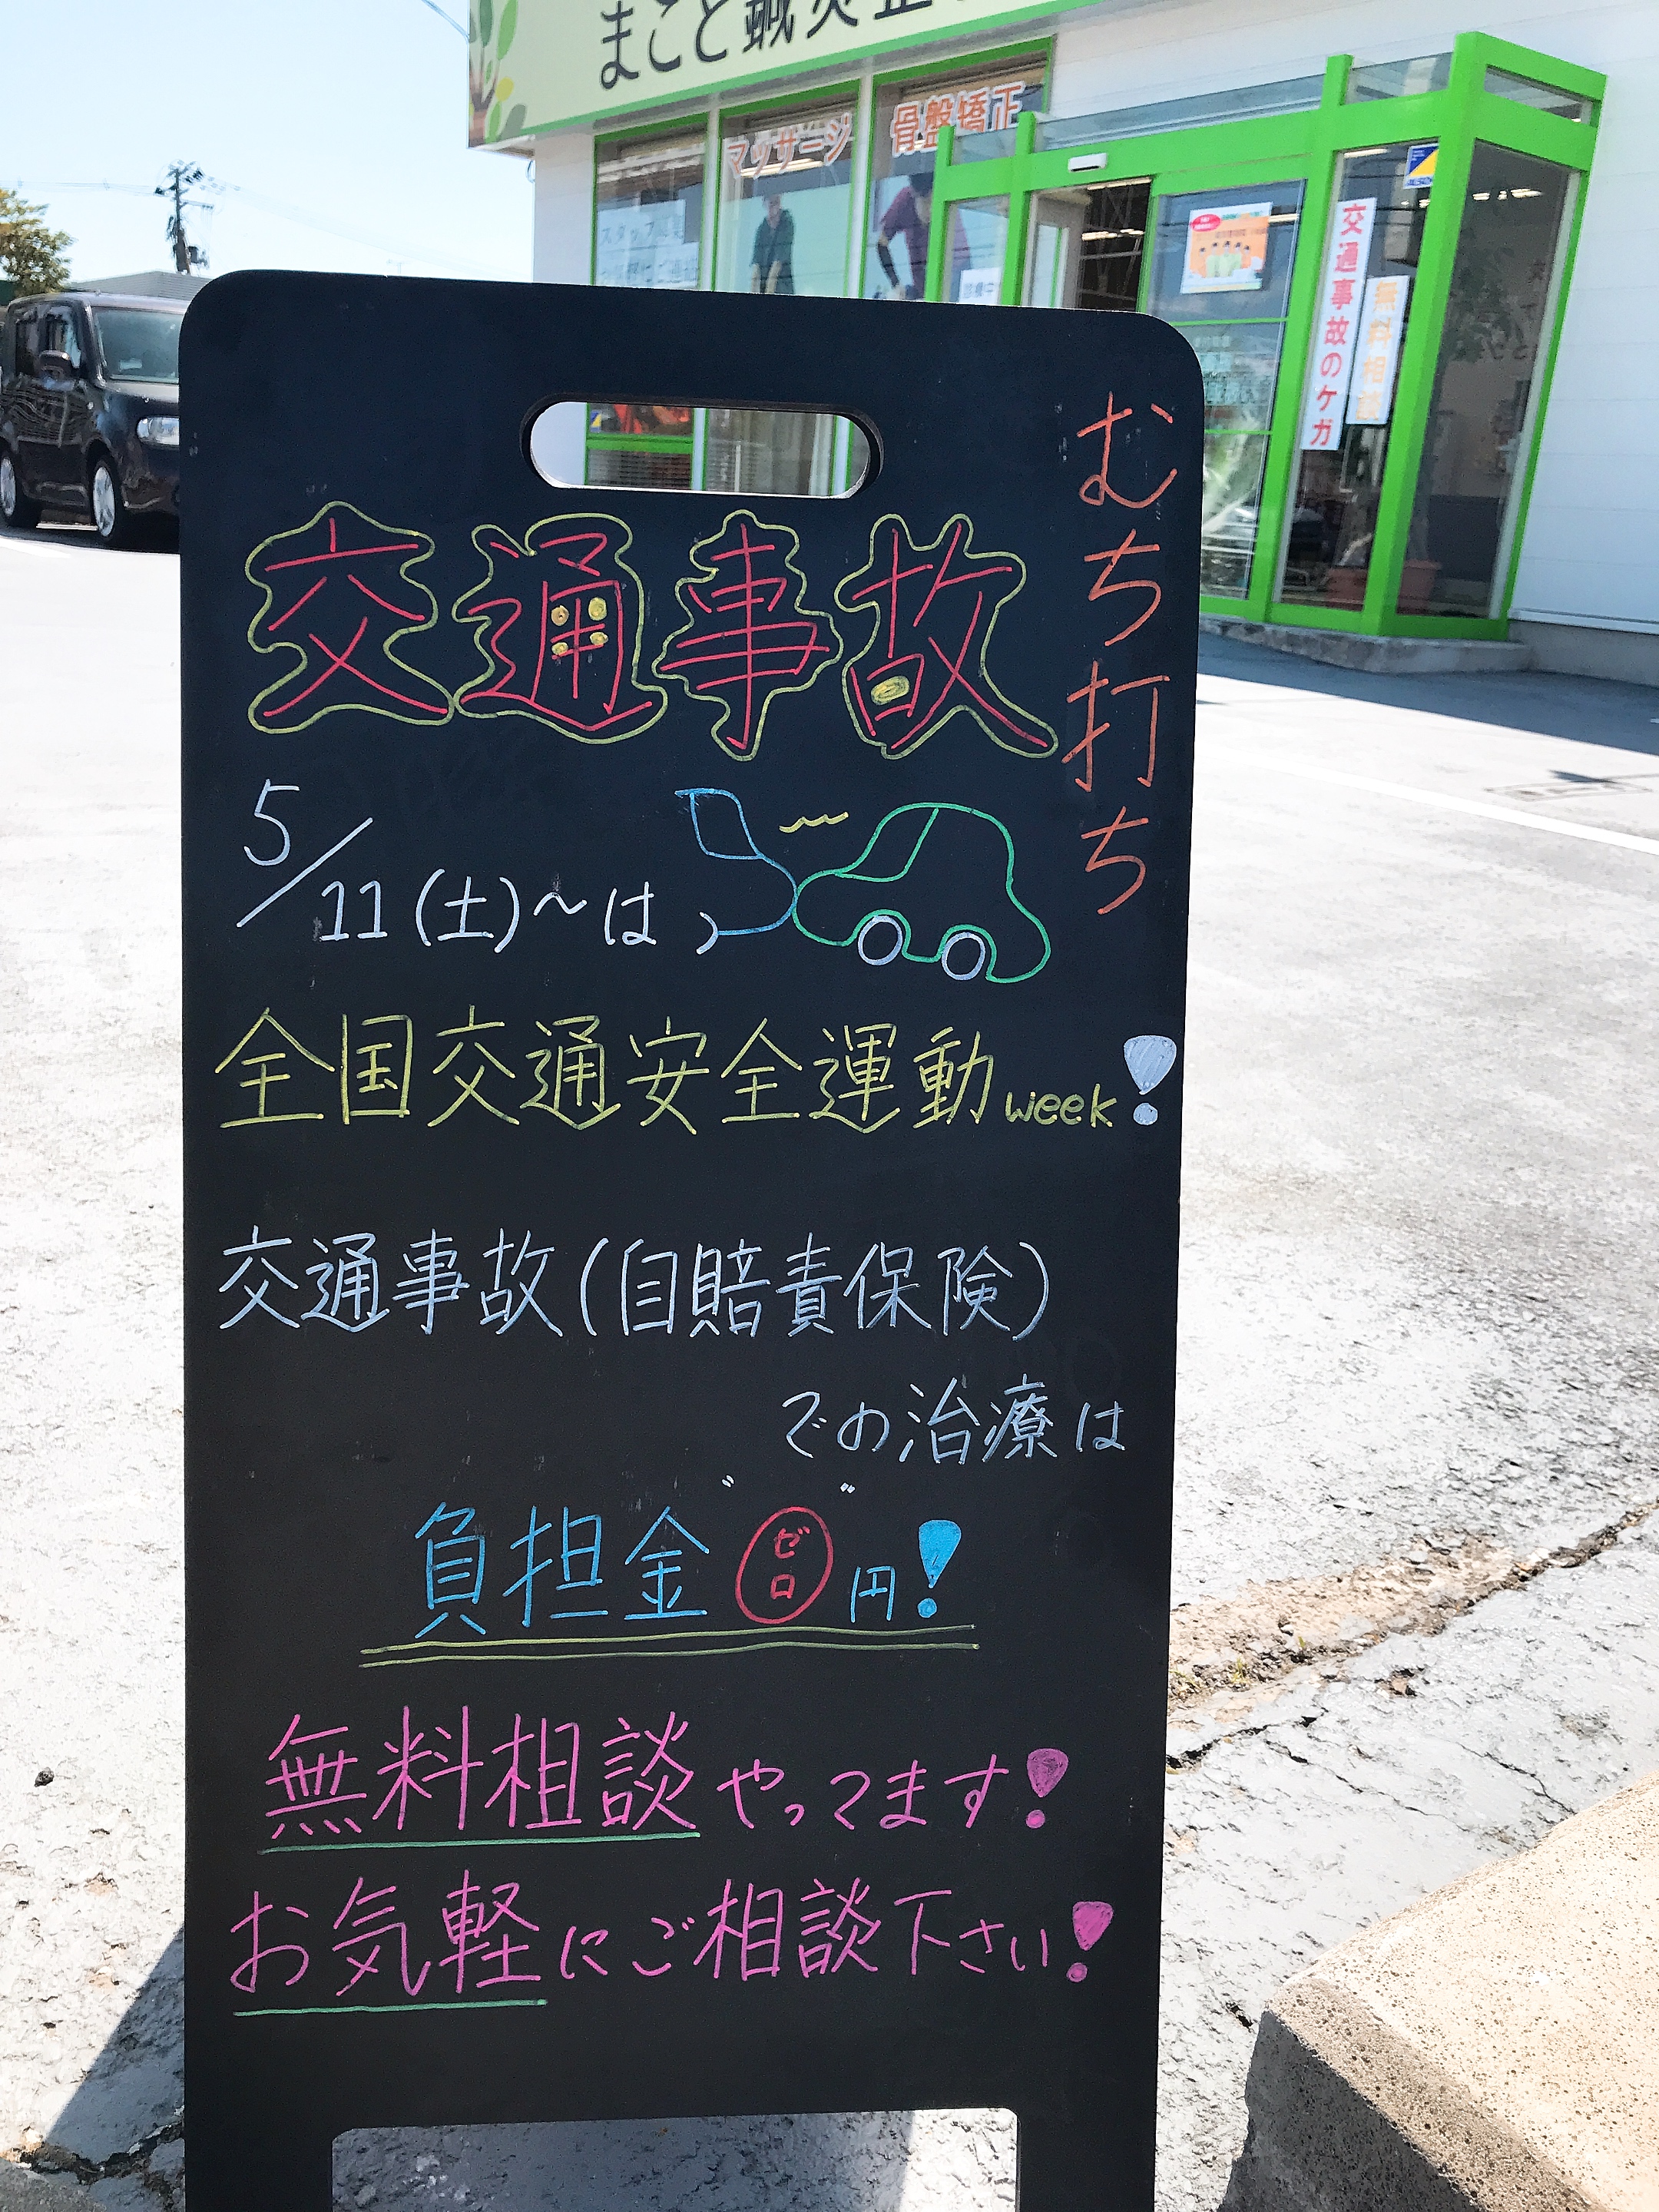 まこと鍼灸整
マッサージ
骨盤矯正
交通事故のケガ
無料相談
むち打ち
交通事故
5/11(土)~は、
全国交通安全運動week!
交通事故(自賠責保険)
での治療は
負担金"ゼロ"円!
無料相談やってます!
お気軽にご相談下さい!